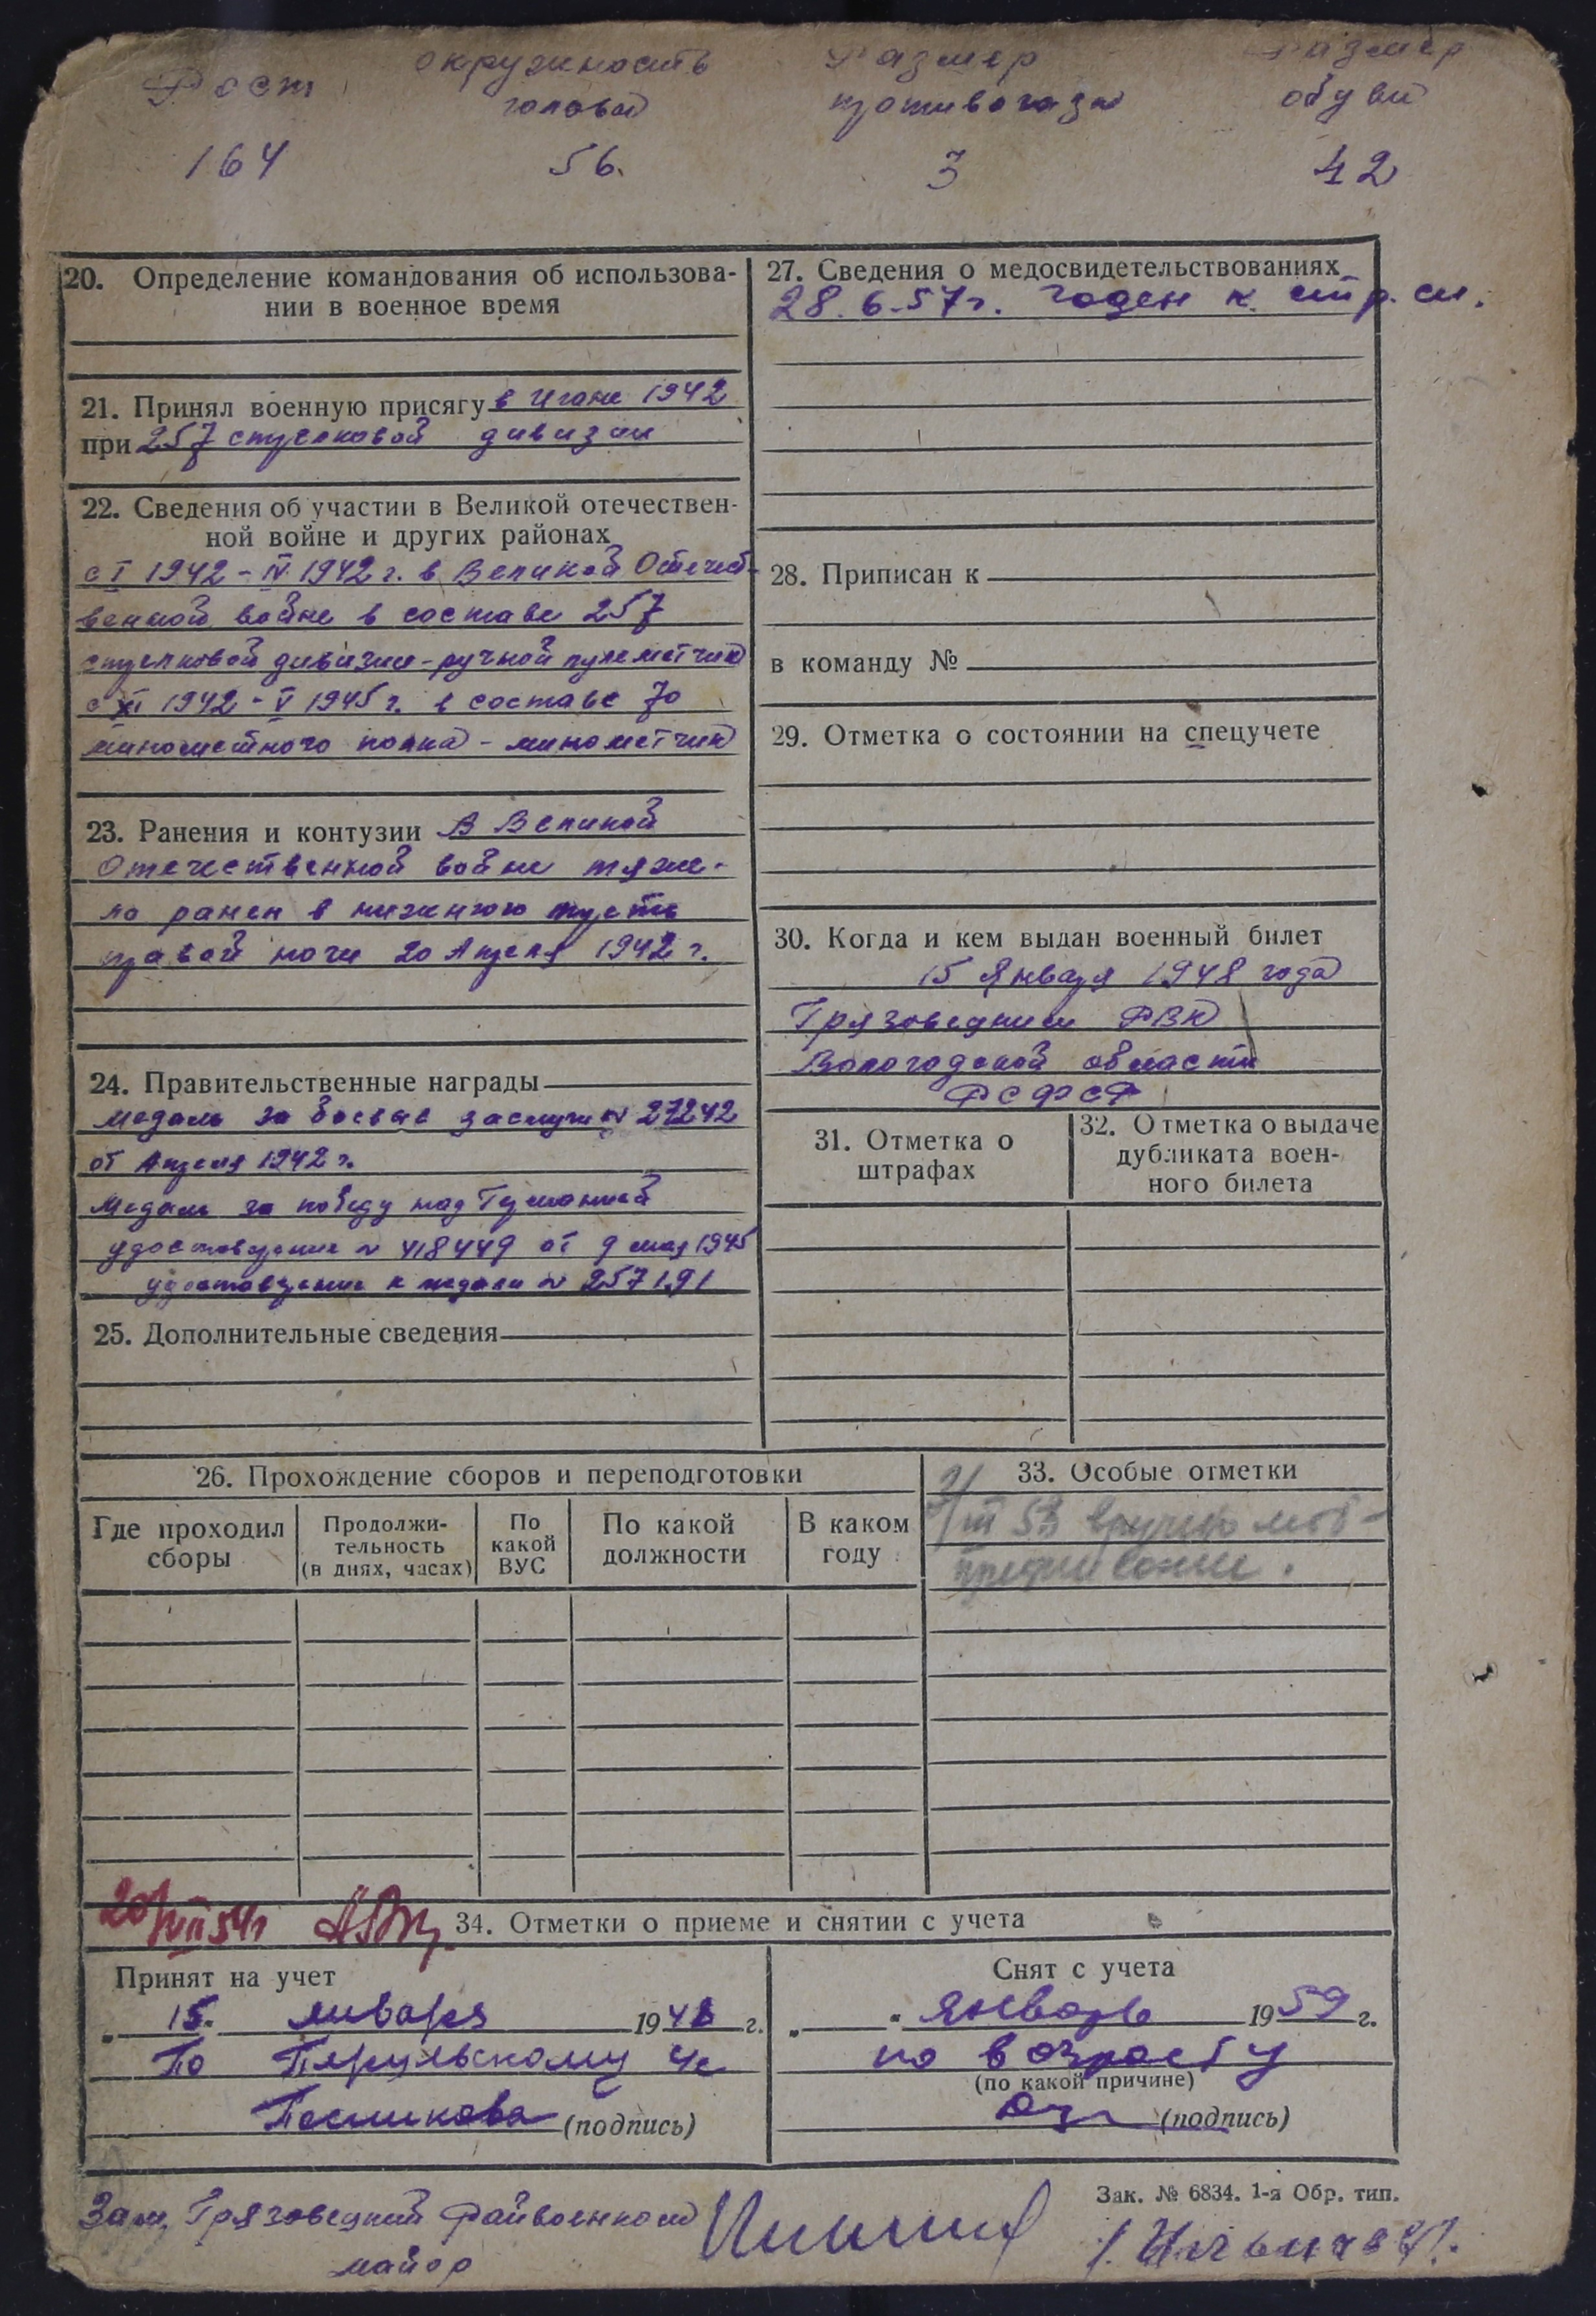 Рост окружность головы Размер противогаза Размер обуви
164 56. 3 42
20. Определение командования об использова-
нии в военное время
21. Принял военную присягу в Июне 1942
при 257 стрелковой дивизии
22. Сведения об участии в Великой отечествен-
ной войне и других районах
с I 1942 - IV 1942 г. в Великой Отечест-
венной войне в составе 257
стрелковой дивизии - ручной пулеметчик
с XI 1942 - V 1945 г. в составе 70
минометного полка - минометчик
23. Ранения и контузии В Великой
Отечественной войне тяже-
ло ранен в нижнюю треть
правой ноги 20 Апреля 1942 г.
24. Правительственные награды
медаль за боевые заслуги № 27242
от Апреля 1942 г.
Медаль за победу над Германией
удостоверение № 418449 от 9 мая 1945
удостоверение к медали № 257191
25. Дополнительные сведения
27. Сведения о медосвидетельствованиях
28. 6. 57 г. годен к стр. сл.
28. Приписан к
в команду №
29. Отметка о состоянии на спецучете
30. Когда и кем выдан военный билет
15 января 1948 года
Грязовецким РВК
Вологодской области
РСФСР
31. Отметка о
штрафах
32. Отметка о выдаче
дубликата воен-
ного билета
26. Прохождение сборов и переподготовки
Где проходил
сборы
Продолжи-
тельность
(в днях, часах)
По
какой
ВУС
По какой
должности
В каком
году
33. Особые отметки
III 53 вручено моб-
предписание.
20/VII 54 г
34. Отметки о приеме и снятии с учета
Принят на учет
" 15. " января 1948 г.
По
(подпись)
Снят с учета
" " Январь 1959 г.
по возрасту
(по какой причине)
(подпись)
Зак. № 6834. 1-я Обр. тип.
Зам. Грязовецкий Райвоенком
майор